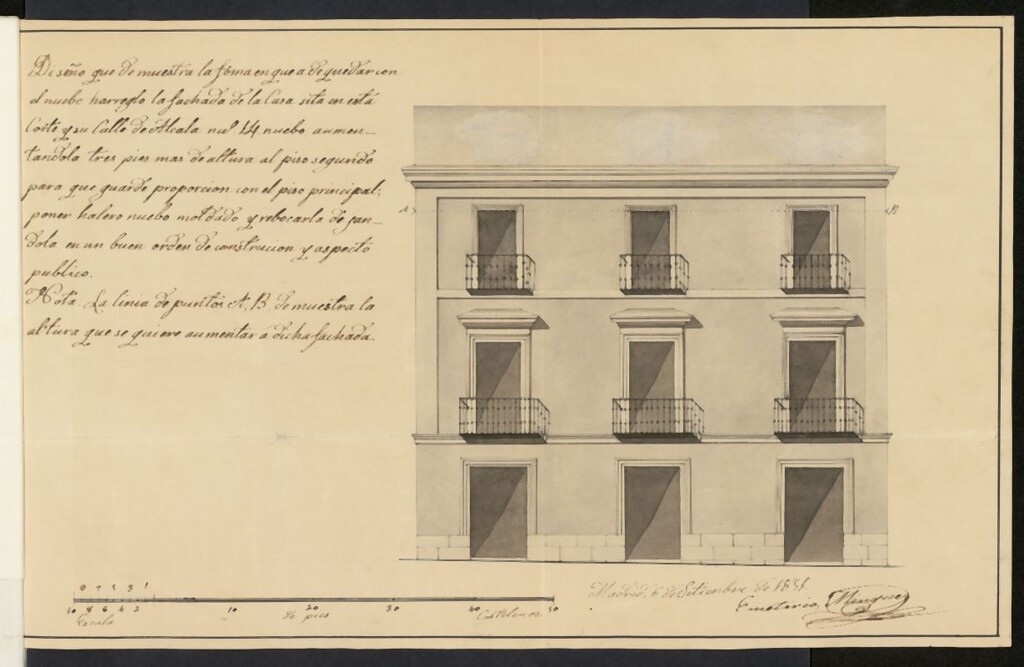 Diseño que demuestra la forma en que a de quedar con
el nuebo harreglo la fachada de la Casa sita en està
Corte y su Calle de Alcala nu.º 14 nuebo aumen-
tandola tres pies mas de altura al piso segundo
para que guarde proporcion con el piso principal;
poner halero nuebo moldado y rebocarla de jan-
dola en un buen orden de construcion y aspecto
publico.
Nota. La linia de puntos A, B, demuestra la
altura que se quiere aumentar a dicha fachada.
A
B
10 8 6 4 2 10 20 30 50
Escala de pies Castellanos
Madrid, 6 de Setiembre de
Emeterio Minguez